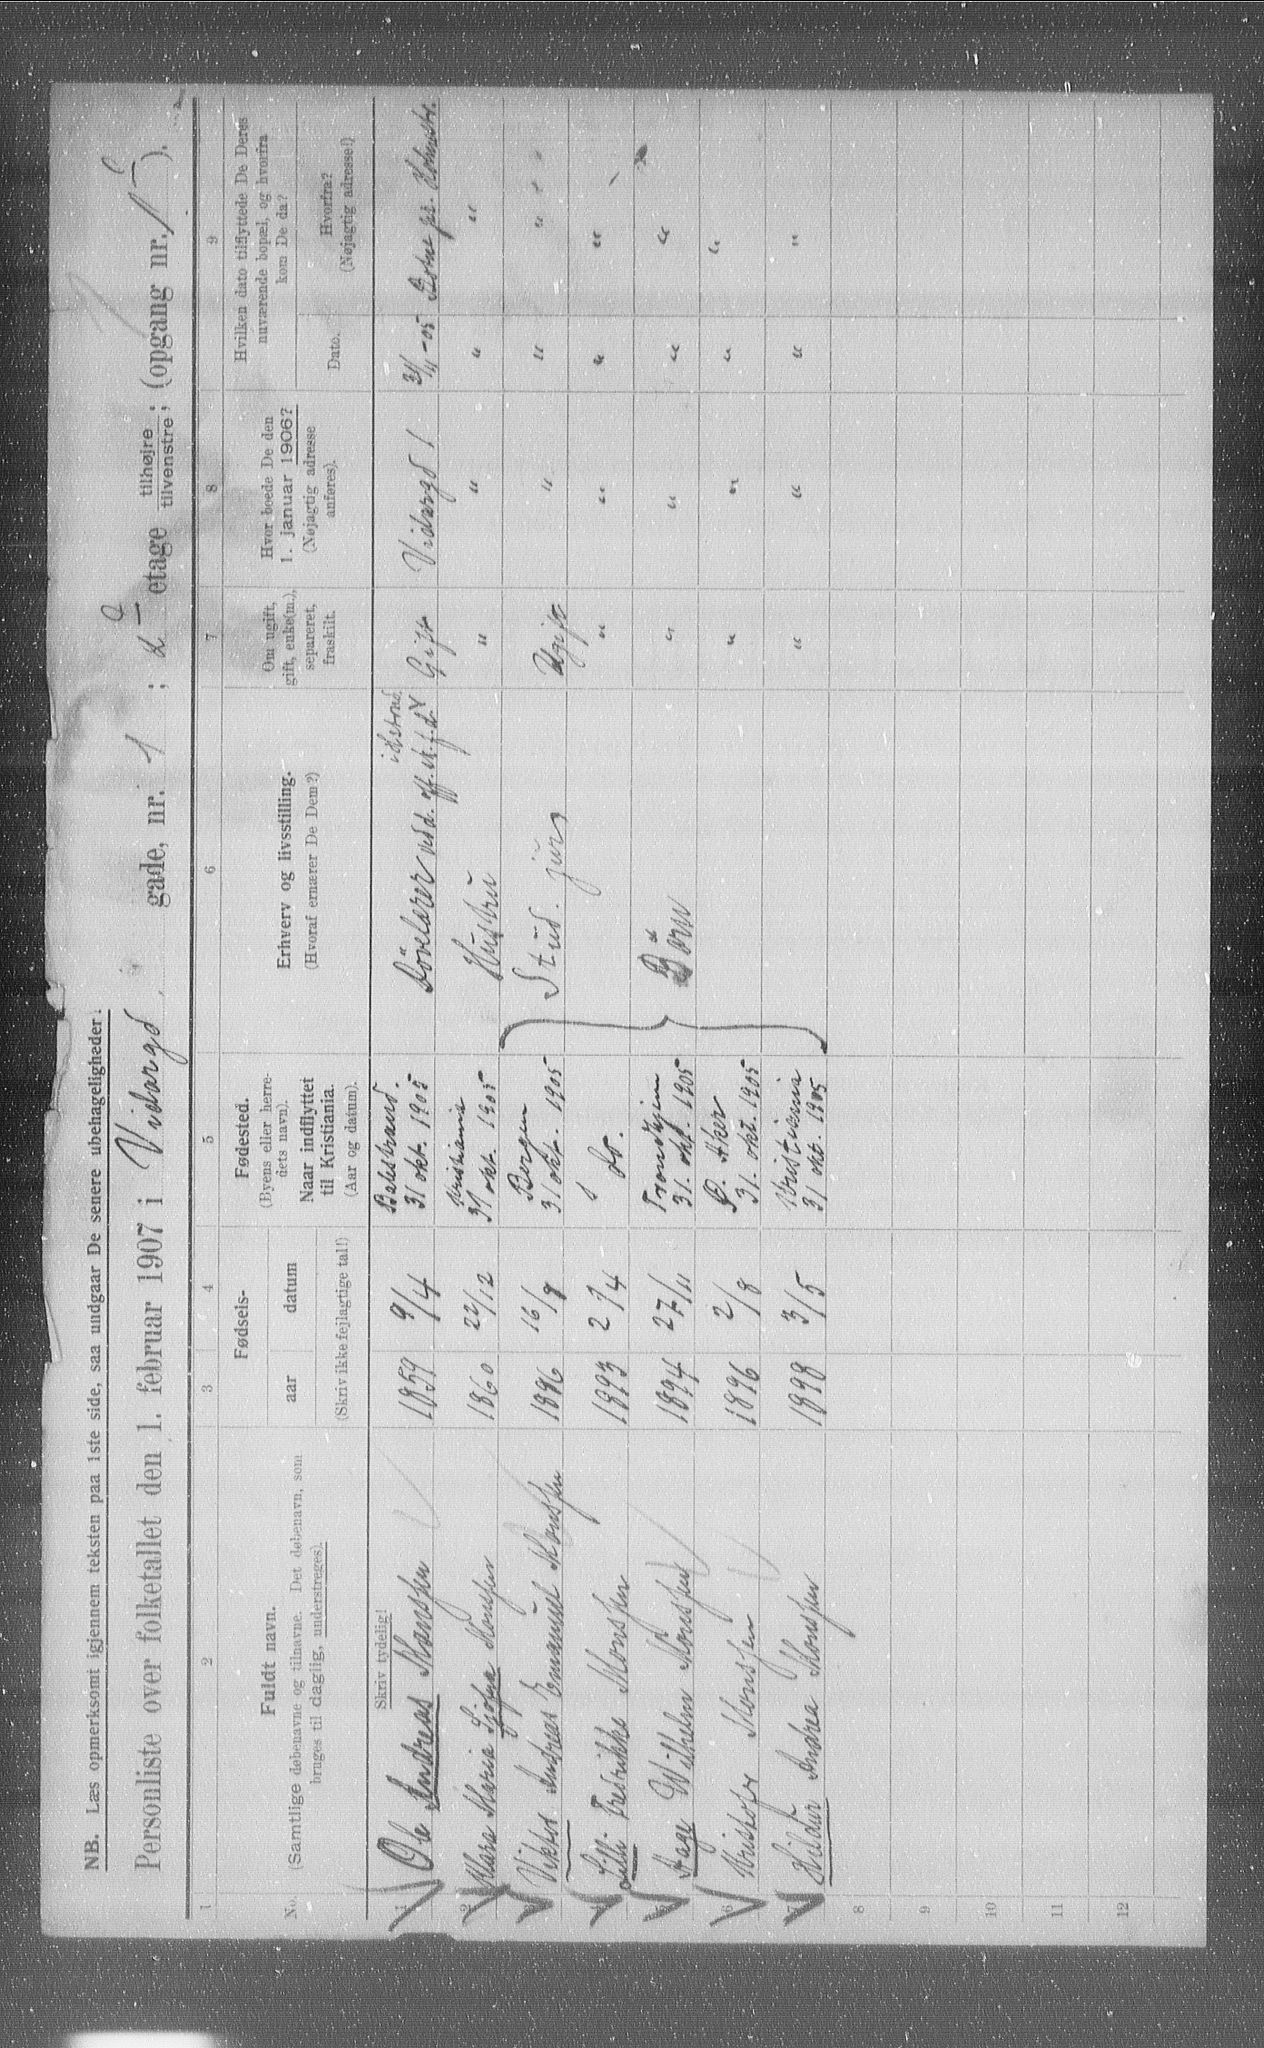 NB. Læs opmerksomt igjennem teksten paa 1ste side, saa undgaar De senere ubehageligheder.
Personliste over folketallet den 1. februar 1907 i Vidargd gade, nr. 1 ; 2 etage tilhøjre tilvenstre; (opgang nr. 1).
1 2 3 4 5 6 7 8 9
No. Fuldt navn. (Samtlige døbenavne og tilnavne. Det døbenavn, som bruges til daglig, understreges).
Fødsels- aar datum (Skriv ikke fejlagtige tal!)
Fødested. (Byens eller herredets navn). Naar indflyttet til Kristiania. (Aar og datum).
Erhverv og livsstilling. (Hvoraf ernærer De Dem?)
Om ugift, gift, enke(m.), separeret, fraskilt.
Hvor boede De den 1. januar 1906? (Nøjagtig adresse anføres).
Hvilken dato tilflyttede De Deres nuværende bopæl, og hvorfra kom De da?
Dato. Hvorfra? (Nøjagtig adresse!)
Skriv tydelig!
1 Ole Andreas 1859 9/4 Balestrand. 31 okt. 1905 Døvelærer Gift Vidargd 1 -05 Botne pr. Holmestr.
2 Klara Maria 1860 22/12 Kristiania 31 okt. 1905 Hustru " " " "
3 Viktor Andreas Emanuel 1886 16/8 Bergen 31 okt. 1905 Stud. jur. Ugift " " "
4 Lilli Fredrikke Monssen 1893 2/4 do. " " " "
5 Aage Wilhelm Monssen 1894 27/11 Trondhjem 31. okt. 1905 Børn " " " "
6 Kristofer Monssen 1896 2/8 Ø. Aker 31. okt. 1905 " " " "
7 Hildur Andrea Monssen 1898 3/5 Kristiania 31 okt. 1905 " " " "
8
9
10
11
12